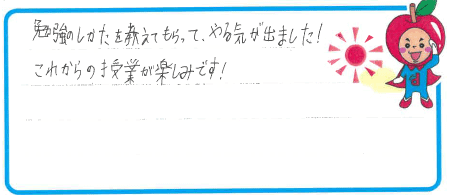 勉強のしかたを教えてもらって、やる気が出ました!
これからの授業が楽しみです!